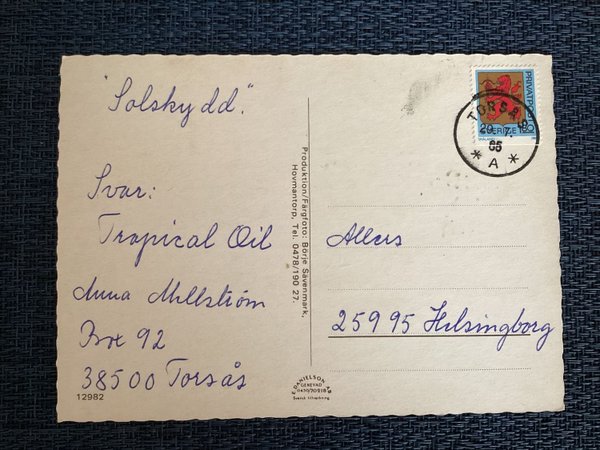 "Solskydd."
Svar:
Tropical Oil
Anna Mellström
Box 92
38500 Torsås
12982
Produktion/Färgfoto: Börje Sävenmark,
Hovmantorp, Tel. 0478/190 27.
DANIELSON
Svensk tillverkning
PRIVATPOST
SVERIGE
TORSÅS
29. 7.
85
* A *
Allers
259 95 Helsingborg